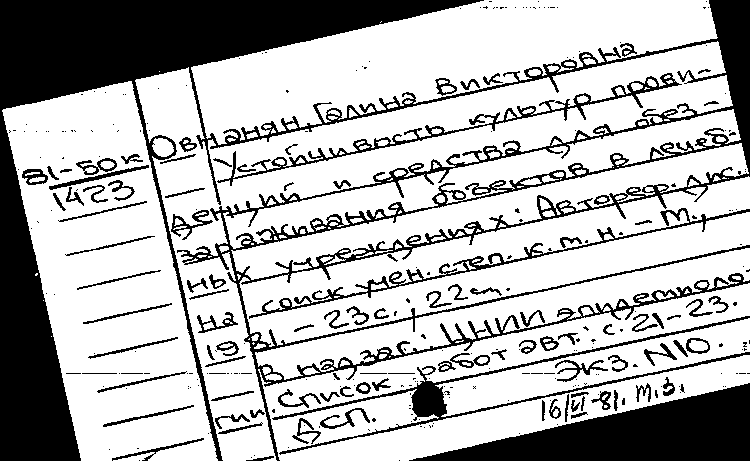 Овнанян, Галина Викторовна.
81-50к
1423
Устойчивость культур прови-
денций и средства для обез-
зараживания объектов в лечеб-
ных учреждениях: Автореф. дис.
на соиск учен. степ. к. м. н. - М.,
1981. - 23с.; 22см.
В надзаг.: ЦНИИ эпидемиоло-
гии. Список работ авт.: с. 21-23.
ДСП. Экз. N10.
16/VI-81. м.з.